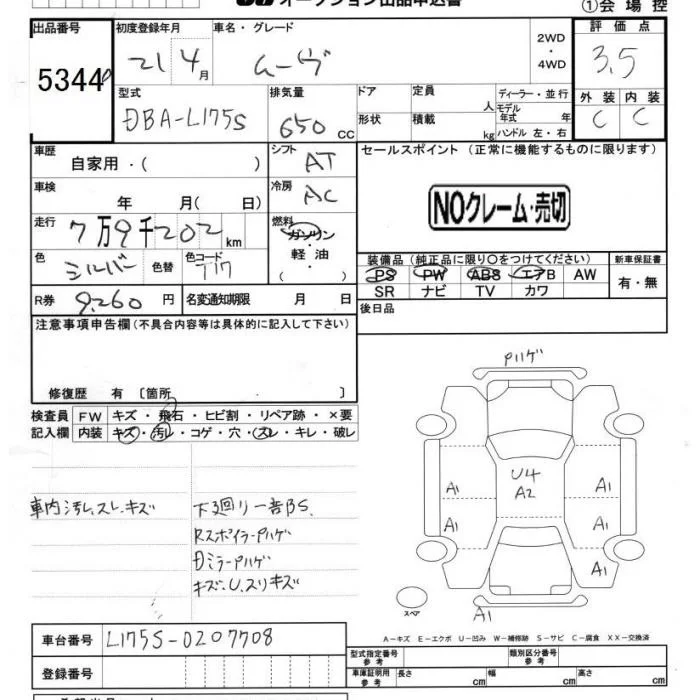 オークション出品申込書
①会場控
出品番号 初度登録年月 車名・グレード 評価点
5344 21年 4月 ムーヴ 2WD ・ 4WD 3.5
型式 排気量 ドア 定員 人 ディーラー・並行 外装 内装
DBA-L175S 650 cc 形状 積載 kg モデル年式 年 ハンドル 左・右 C C
車歴 自家用・( ) シフト AT セールスポイント (正常に機能するものに限ります)
車検 年 月( 日) 冷房 AC
NOクレーム・売切
走行 7万9千202km 燃料 ガソリン・軽油 ( )
色 シルバー 色替 色コード T17
装備品 (純正品に限り〇をつけてください) 新車保証書
PS PW ABS エアB AW 有・無
SR ナビ TV カワ
R券 9,260円 名変通知期限 月 日
後日品
注意事項申告欄 (不具合内容等は具体的に記入して下さい)
修復歴 有 〔箇所 〕
検査員記入欄 FW キズ・飛石・ヒビ割・リペア跡・×要
内装 キズ・汚レ・コゲ・穴・スレ・キレ・破レ
Pハゲ
U4
A2
A1 A1
A1 A1
A1
A1
スペア
車内汚レ.スレ.キズ
下廻リ一部S.
RスポイラーPハゲ
DミラーPハゲ
キズ.U.スリキズ
A-キズ E-エクボ U-凹み W-補修跡 S-サビ C-腐食 XX-交換済
車台番号 L175S-0207708
型式指定番号 参考 類別区分番号 参考
登録番号
車庫証明用 参考 長さ cm 幅 cm 高さ cm